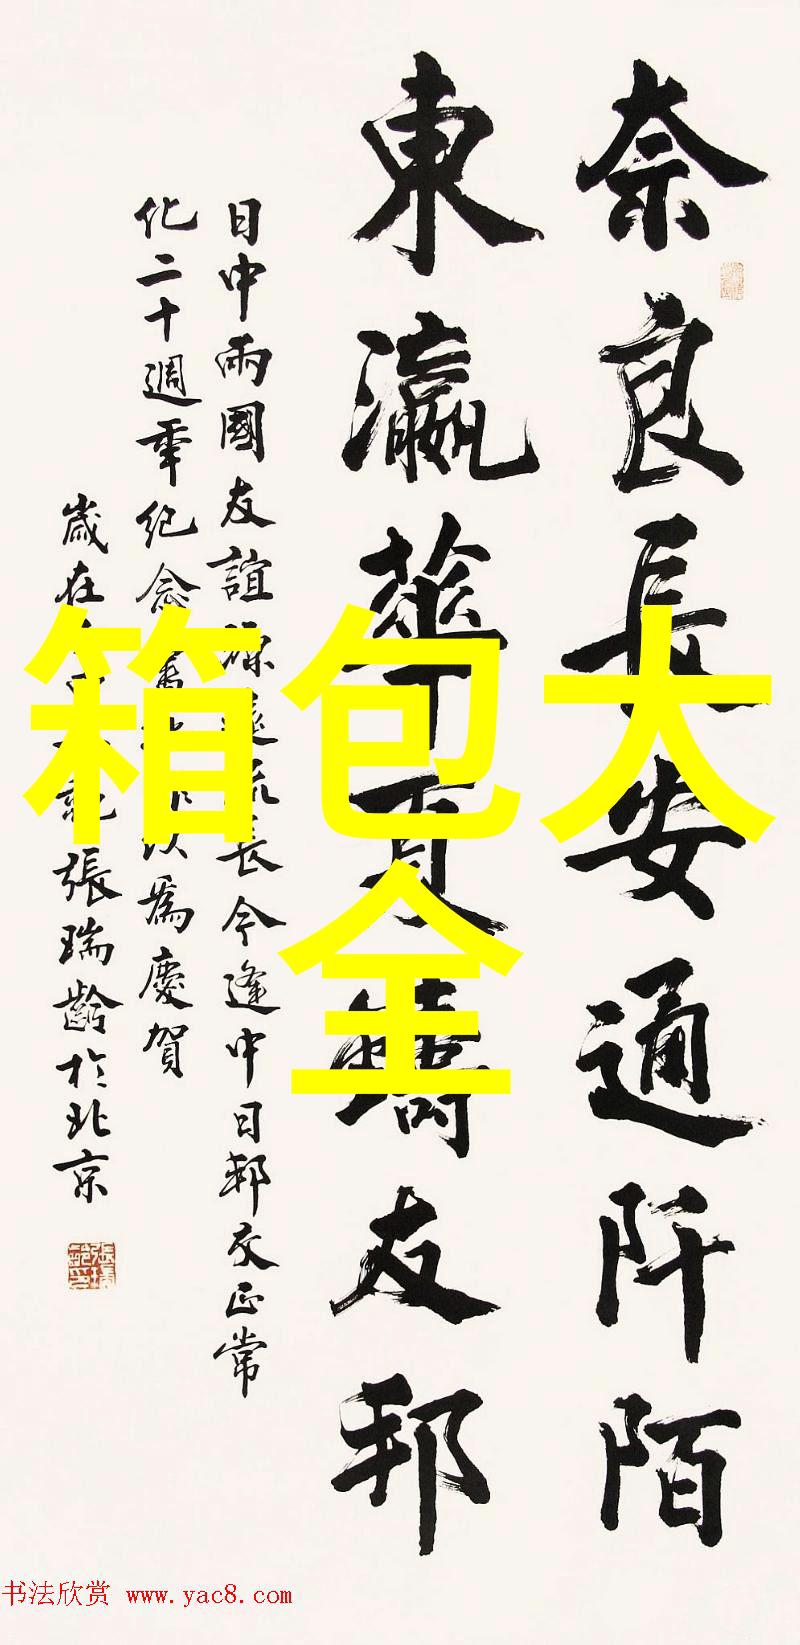 奈良長安通阡陌
東瀛華夏鑄友邦
日中兩國友誼源遠流長今逢中日邦交正常
化二十週年紀念為慶賀
歲在張瑞齡於北京
箱包大
全
书法欣赏 www.yac8.com